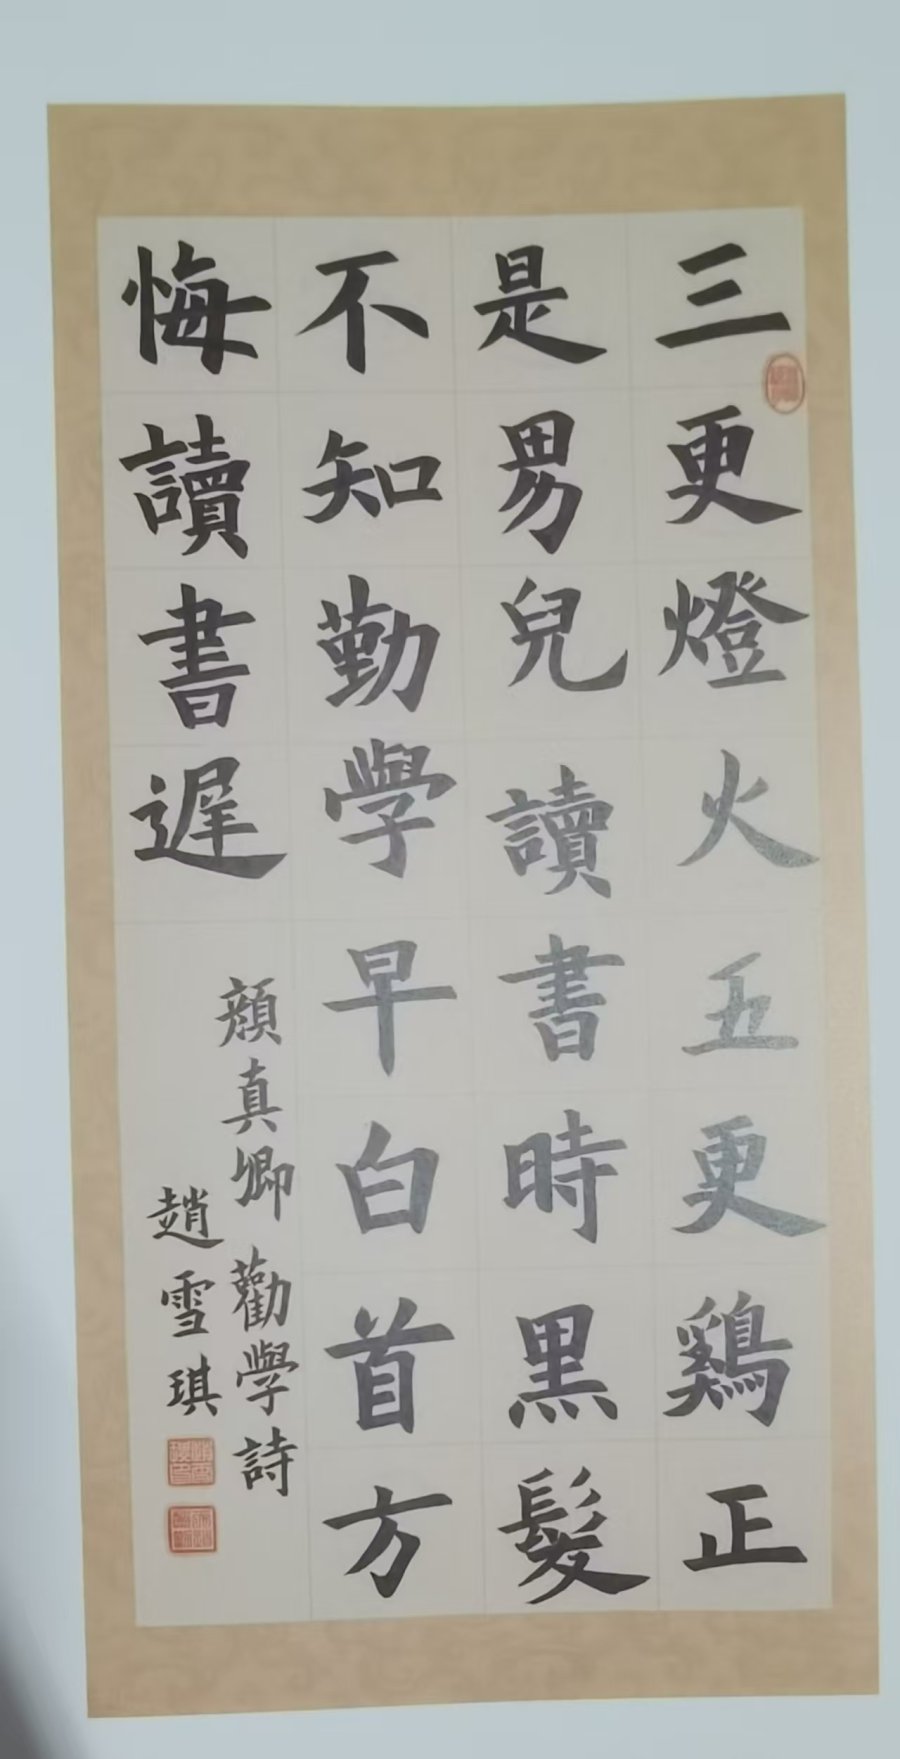 三更燈火五更鷄正
是男兒讀書時黑髮
不知勤學早白首方
悔讀書遲
顏真卿勸學詩
趙雪琪